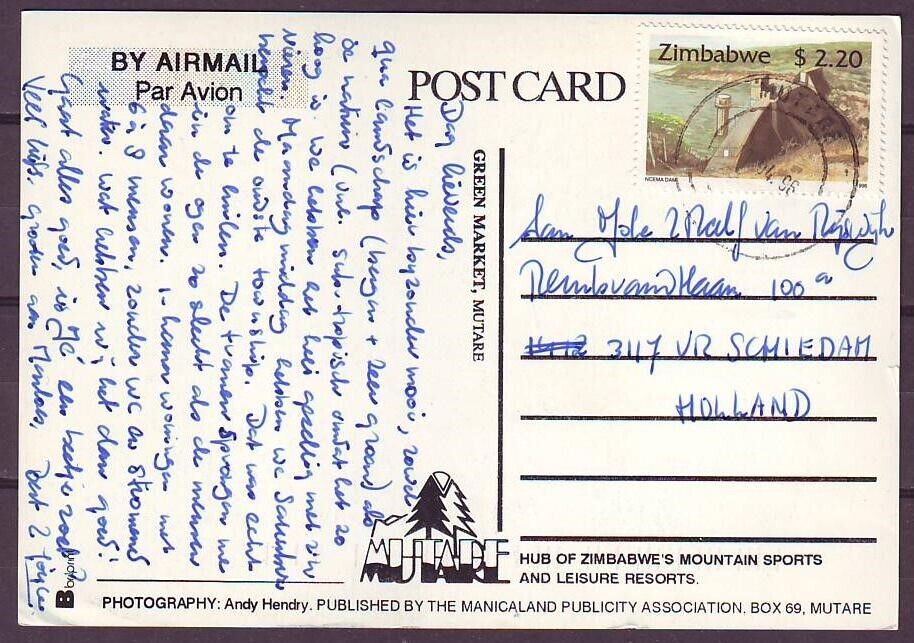 BY AIRMAIL
Par Avion
POST CARD
Zimbabwe $ 2.20
NCEMA DAM
GREEN MARKET, MUTARE
Dag lieverds,
Het is hier byzonder mooi, zowel
qua landschap (bergen + zeer groen) als
de natuur (sub-tropisch omdat het zo
hoog is. We hebben het heel gezellig met z'n
Maandagmiddag hebben we Sakubva
de oudste township. Dat was echt
om te huilen. De tranen sprongen me
in de ogen zo slecht als de mensen
daar wonen. 1-kamer woningen met
6 à 8 mensen, zonder wc en stromend
water. Wat hebben wij het dan goed!
Gaat alles goed, is een beetje zoet?
Veel liefs, groeten aan Marloes,
van Rijswijk
100 a
3117 VR SCHIEDAM
HOLLAND
MUTARE
HUB OF ZIMBABWE'S MOUNTAIN SPORTS
AND LEISURE RESORTS.
PHOTOGRAPHY: Andy Hendry. PUBLISHED BY THE MANICALAND PUBLICITY ASSOCIATION, BOX 69, MUTARE